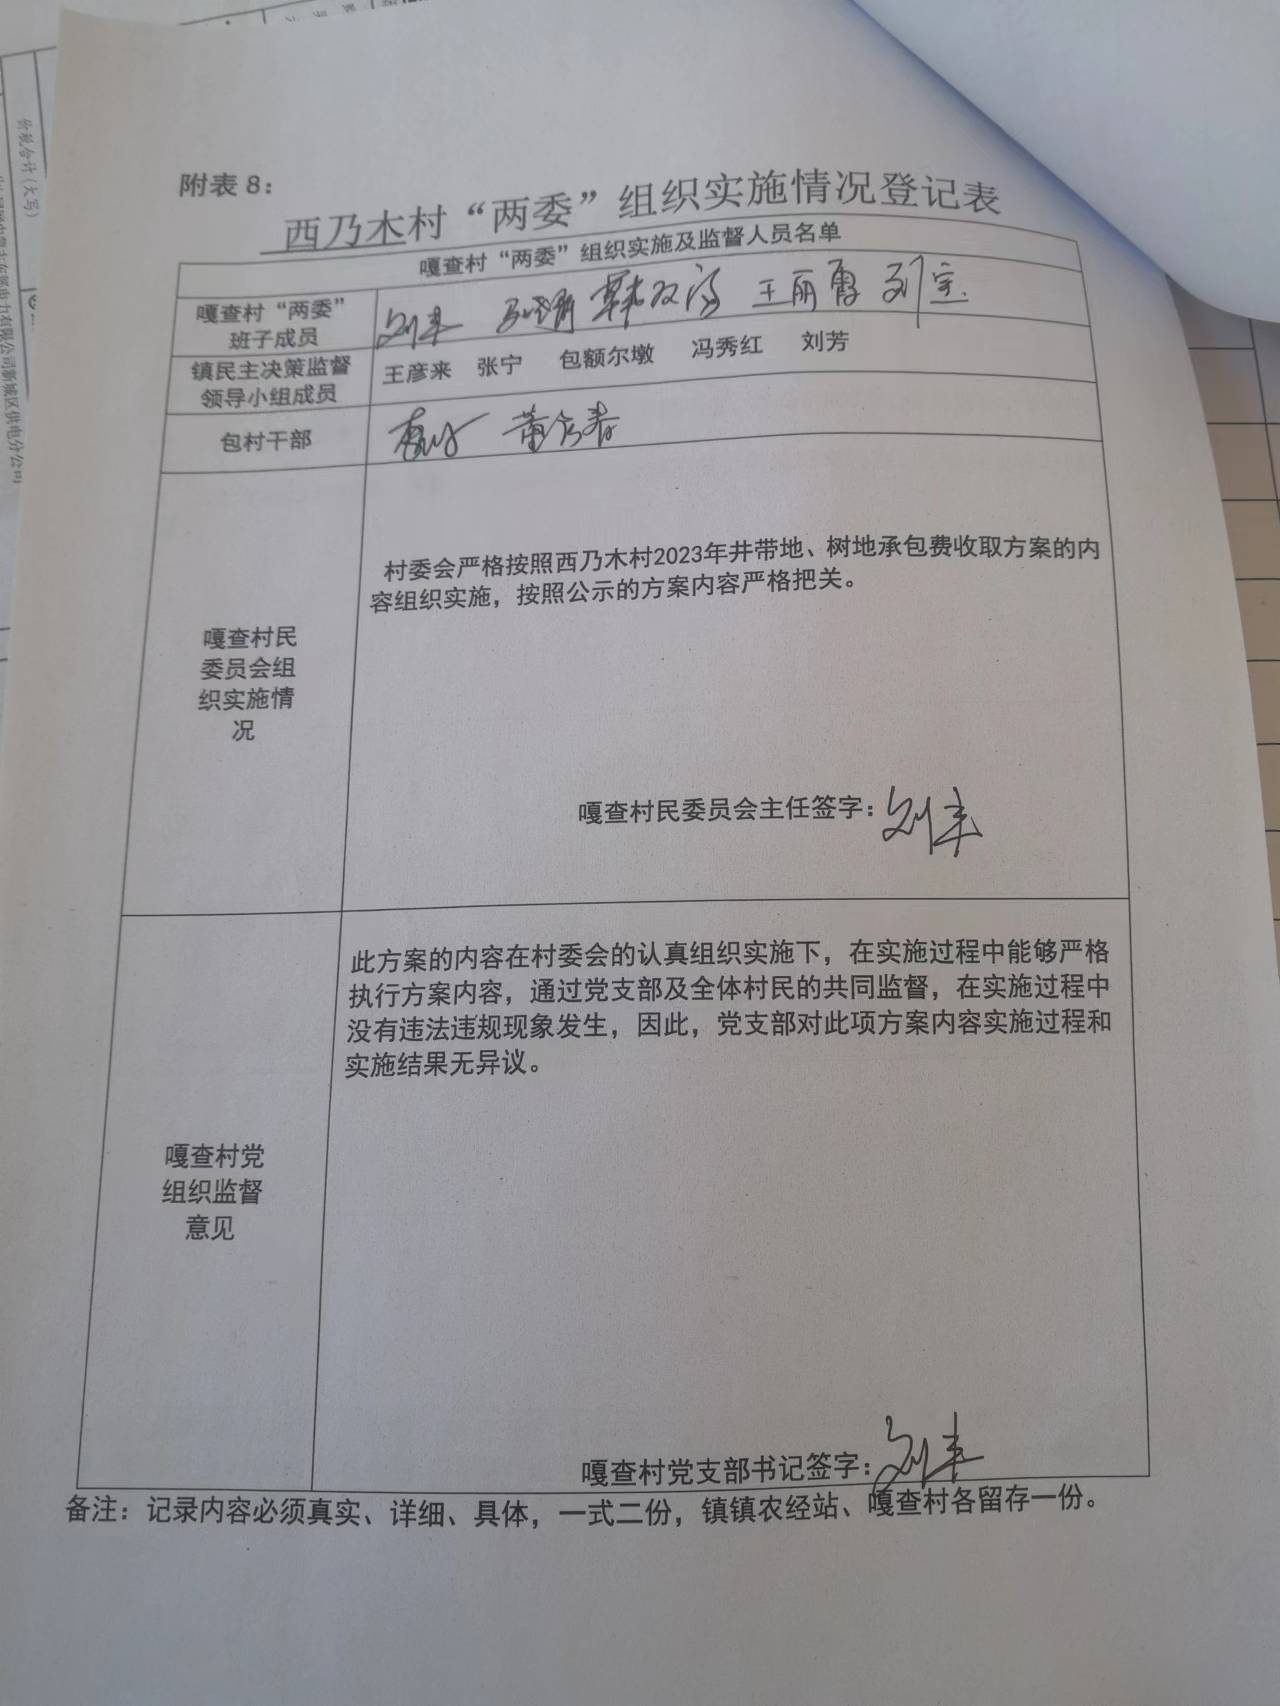 附表 8：
西乃木村“两委”组织实施情况登记表
嘎查村“两委”组织实施及监督人员名单
嘎查村“两委”
班子成员
王丽霞 刘宝
镇民主决策监督
领导小组成员
王彦来 张宁 包额尔墩 冯秀红 刘芳
包村干部
村委会严格按照西乃木村2023年井带地、树地承包费收取方案的内
容组织实施，按照公示的方案内容严格把关。
嘎查村民
委员会组
织实施情
况
嘎查村民委员会主任签字：
此方案的内容在村委会的认真组织实施下，在实施过程中能够严格
执行方案内容，通过党支部及全体村民的共同监督，在实施过程中
没有违法违规现象发生，因此，党支部对此项方案内容实施过程和
实施结果无异议。
嘎查村党
组织监督
意见
嘎查村党支部书记签字：
备注：记录内容必须真实、详细、具体，一式二份，镇镇农经站、嘎查村各留存一份。
价税合计（大写）